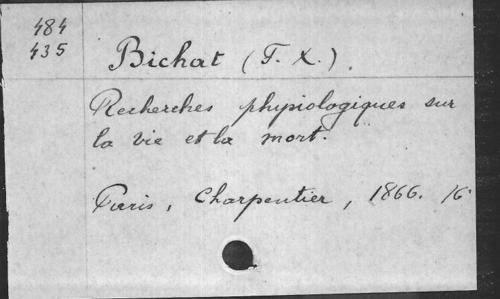 484
435
Bichat (F. X.).
Recherches physiologiques sur
la vie et la mort.
Paris, Charpentier, 1866. 16